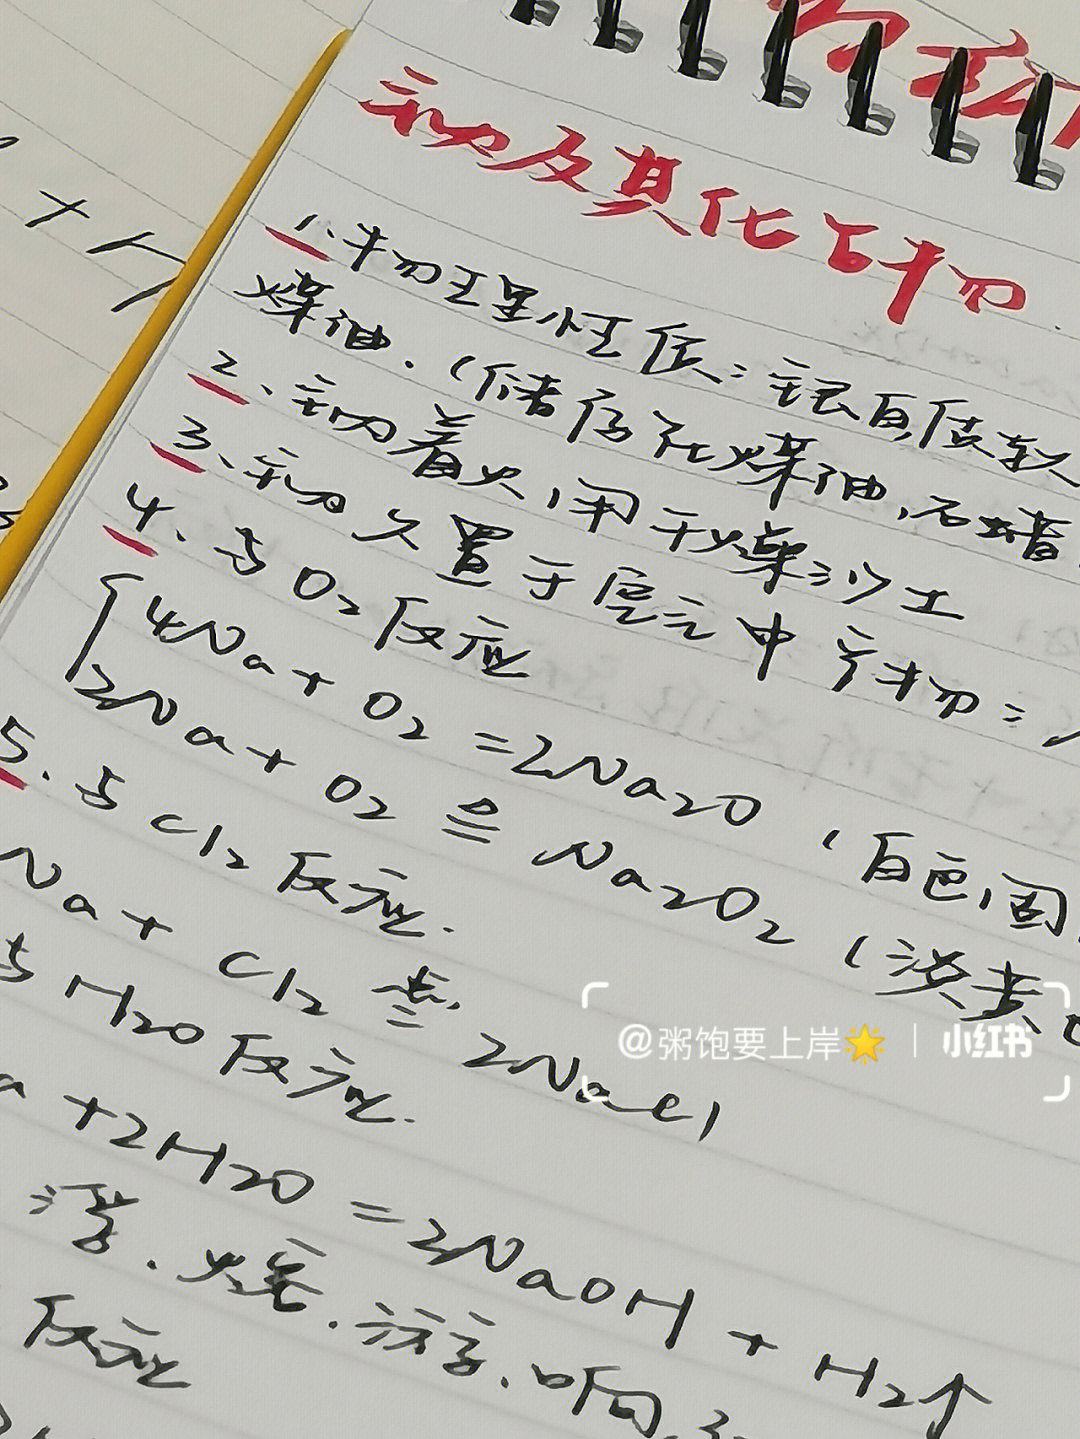 钠及其化合物
1.物理性质：银白质软
煤油.（储存在煤油,石蜡
2、钠着火,用干燥沙土
3、钠久置于空气中产物：
4、与O₂反应
{4Na+O₂=2Na₂O（白色固
2Na+O₂≜Na₂O₂（淡黄色
5.与Cl₂反应.
Na+Cl₂ 点燃 2NaCl
与H₂O反应.
a+2H₂O=2NaOH+H₂↑
熔.游.响
反应
+H
@粥饱要上岸🌟 | 小红书